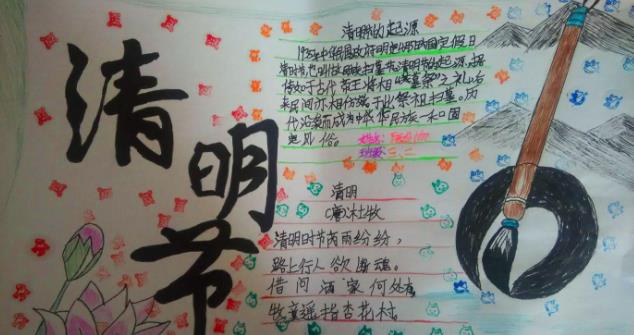 清明节
清明节的起源
1935年中华民国政府明定4月5日为国定假日
清明节,也叫做民族扫墓节。清明节的起源,据
传始于古代帝王将相“墓祭”之礼,后
来民间亦相仿效,于此祭祖扫墓。历
代沿袭而成为中华民族一种固
定风俗。 姓名:
班级:二、二
清明
(唐)杜牧
清明时节雨纷纷,
路上行人欲断魂。
借问酒家何处有
牧童遥指杏花村